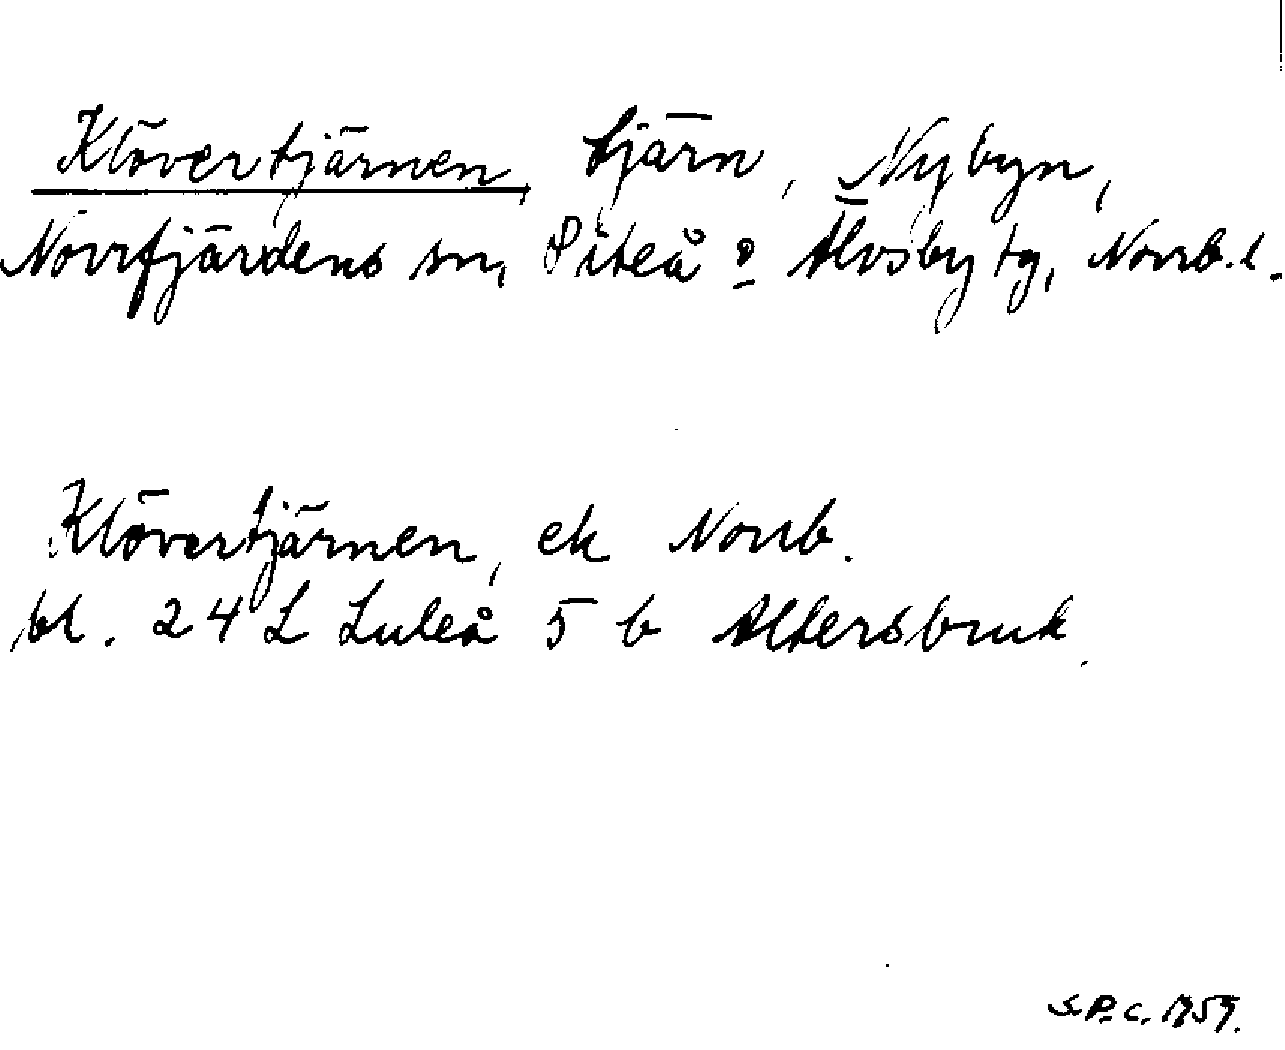 Klövertjärnen, tjärn, Nybyn,
Norrfjärdens sn, Piteå o Älvsby tg, Norrb. l.
Klövertjärnen, ek Norrb.
bl. 24 L Luleå 5 b Altersbruk
S.P.C. 1959.